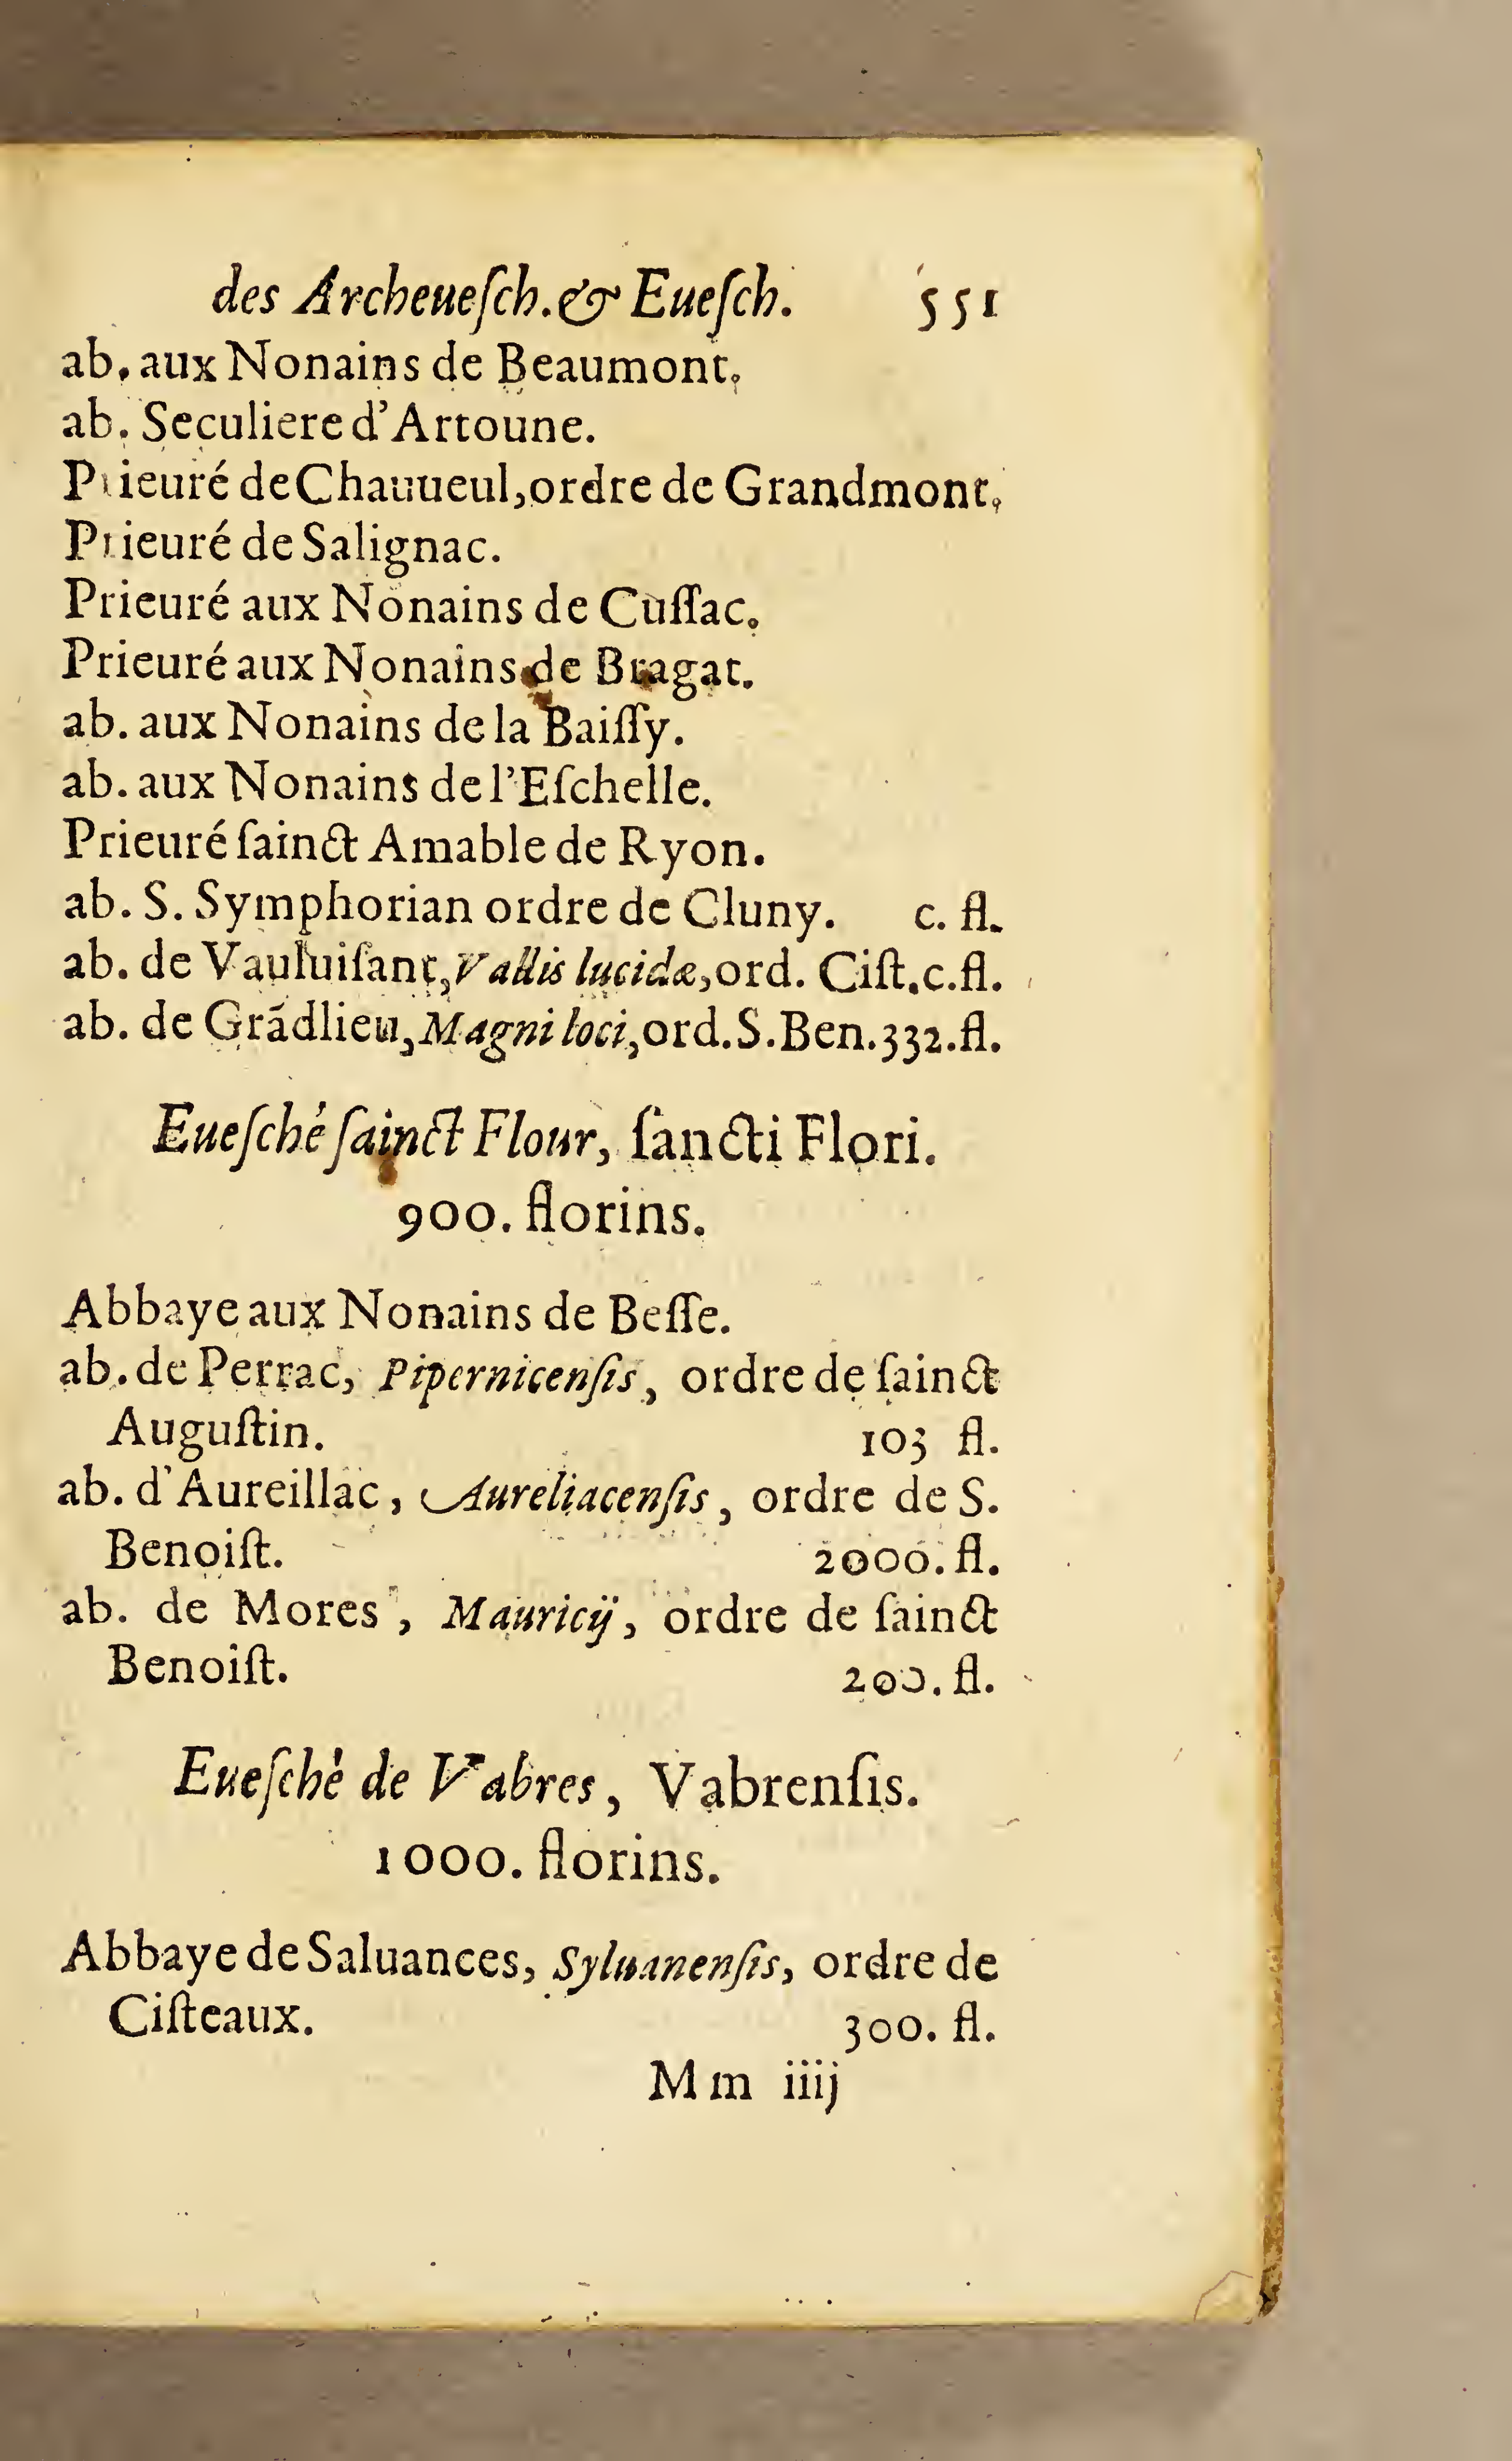 des Archeueſch. & Eueſch. 551
ab. aux Nonains de Beaumont.
ab. Seculiere d'Artoune.
Prieuré de Chauueul, ordre de Grandmont.
Prieuré de Salignac.
Prieuré aux Nonains de Cuſſac.
Prieuré aux Nonains de Bragat.
ab. aux Nonains de la Baiſſy.
ab. aux Nonains de l'Eſchelle.
Prieuré ſainct Amable de Ryon.
ab. S. Symphorian ordre de Cluny. c. fl.
ab. de Vauluiſant, Vallis lucidæ, ord. Ciſt. c. fl.
ab. de Grãdlieu, Magni loci, ord. S. Ben. 332. fl.
Eueſché ſainct Flour, ſancti Flori.
900. florins.
Abbaye aux Nonains de Beſſe.
ab. de Perrac, Pipernicenſis, ordre de ſainct
Auguſtin. 103 fl.
ab. d'Aureillac, Aureliacenſis, ordre de S.
Benoiſt. 2000. fl.
ab. de Mores, Mauricij, ordre de ſainct
Benoiſt. 200. fl.
Eueſché de Vabres, Vabrenſis.
1000. florins.
Abbaye de Saluances, Syluanenſis, ordre de
Ciſteaux. 300. fl.
Mm iiij